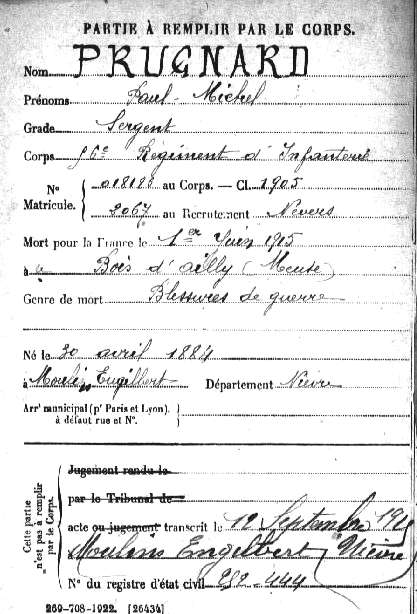 PARTIE À REMPLIR PAR LE CORPS.
Nom PRUGNARD
Prénoms Paul-Michel
Grade Sergent
Corps 56e Régiment d'Infanterie
Nº Matricule. { 018188 au Corps. — Cl. 1905
2067 au Recrutement Nevers
Mort pour la France le 1er Juin 1915
à Bois d'ailly (Meuse)
Genre de mort Blessures de guerre
Né le 30 avril 1884
à Moulins Engilbert Département Nièvre
Arrt municipal (pr Paris et Lyon),
à défaut rue et Nº.
Cette partie n'est pas à remplir par le Corps.
Jugement rendu le
par le Tribunal de
acte ou jugement transcrit le 12 Septembre
Moulins Engelbert Nièvre
Nº du registre d'état civil 252-444
269-708-1922. [26434]